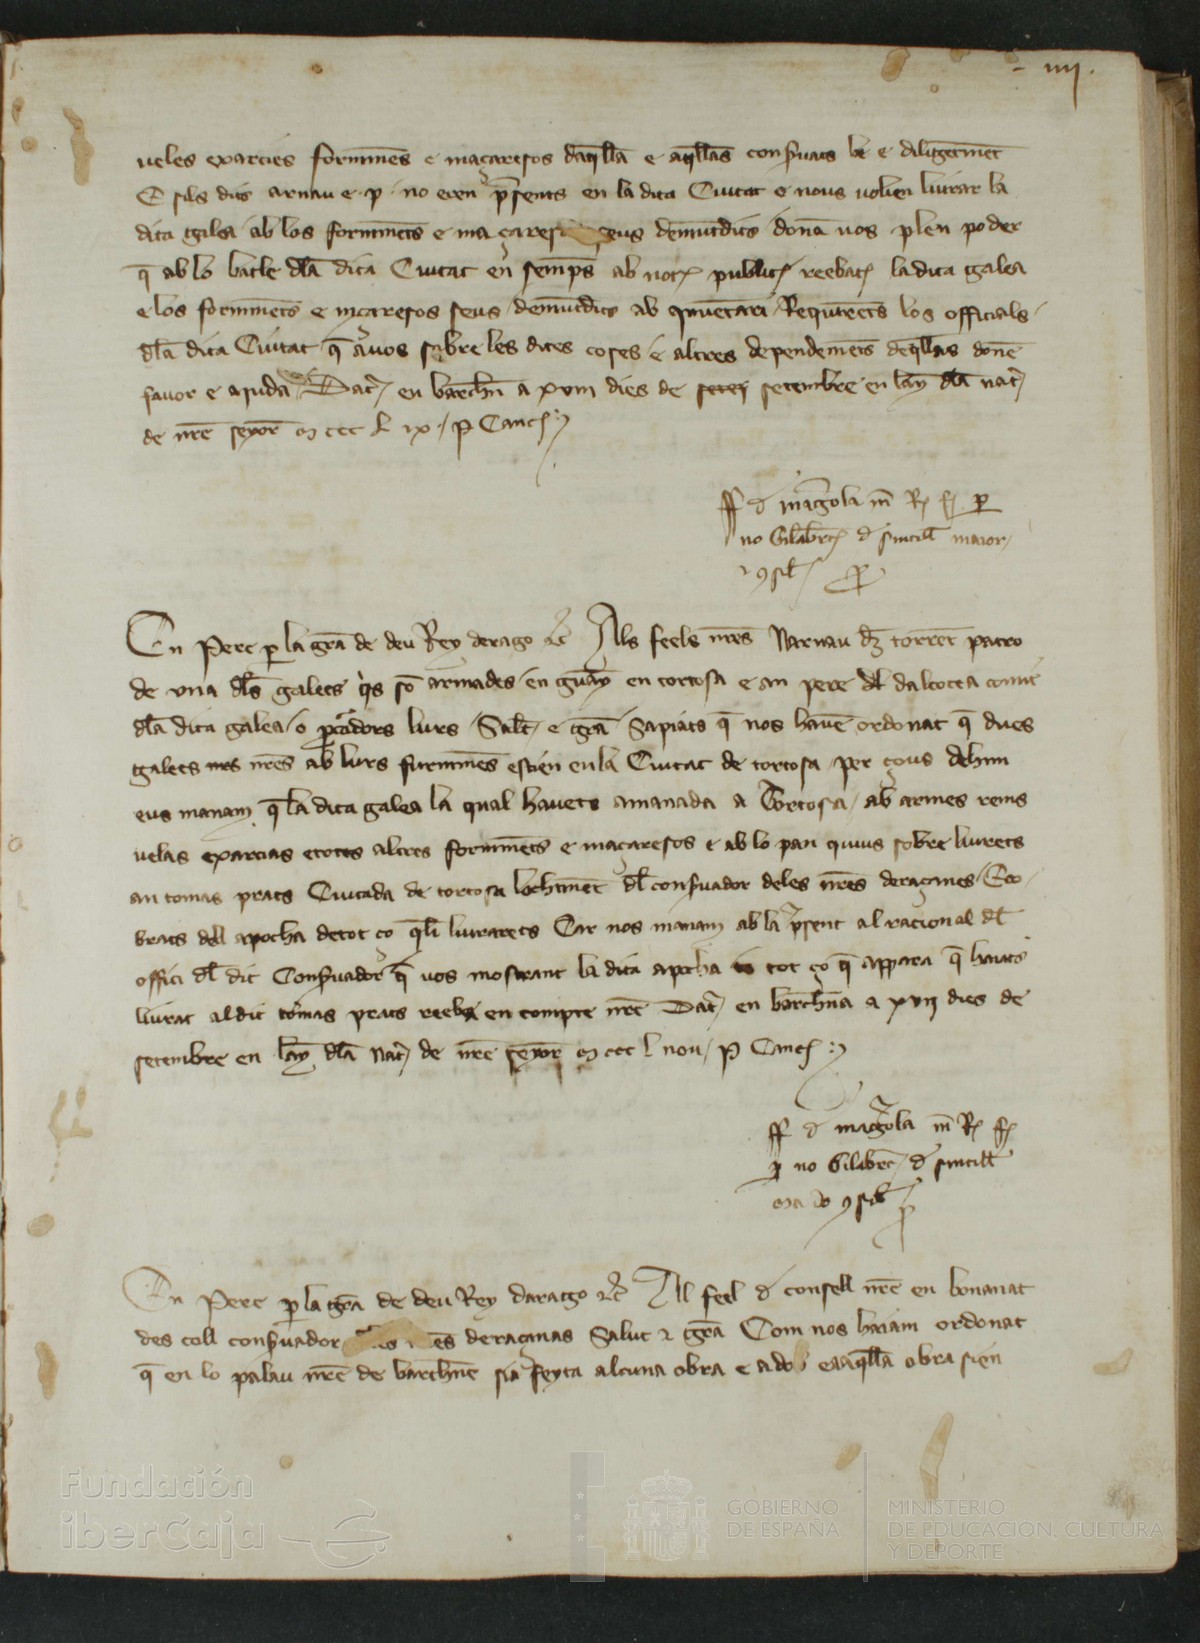 iiij.
ueles exarcies fornimēs e maçaresos daq̄lla e aq̄llas conſuats be e diligētmēt
E sils dits arnau e .p. no eren p̄sents en la dita Ciutat e nous volien liurar la
dita galea ab los fornimēts e maçares seus demūtdits donā uos plen poder
q̄ ab lo batle dl̄a dita Ciutat en semps ab not publich reebats la dita galea
e los fornimēts e maçaresos seus demūtdits ab inuētari Requirēts los officials
dl̄a dita Ciutat q̄ a uos sobre les dites coses e altres dependēts deq̄llas donē
fauor e ajuda Dat en barchn̄ a xviii dies de setembre en lāy dl̄a nat
de nr̄e seyor m ccc L ix / p Canc
ff d magola m̄ R f per
no Gilabt d sintill maior
2 9sil
En Pere p̱ la gr̄a de deu Rey darago 2c̄ Als feels nr̄es Narnau dz torret patro
de vna dl̄s galees q̄s sō armades en guāy en tortosa e an pere dl̄ dalcocea comit
dl̄a dita galea o p̱cādors lurs Salt e gr̄a Sapiats q̄ nos hauē ordonat q̄ dues
galees nr̄es ab lurs furnimēs estien en la Ciutat de tortosa per çous dehim
eus manam q̄ la dita galea la qual hauets amanada a Tortosa ab armes rems
uelas exarcias e totes altres fornimēts e maçaresos e ab lo pan quius sobre liurets
an tomas prats Ciutada de tortosa lochtinēt dl̄ conſuador deles nr̄es deraçanes Eco
brats dell apocha de tot ço q̄li liurarets Car nos manam ab la p̄sent al racional dl̄
offici dl̄ dit Conſuador q̄ uos mostrant la dita apocha tot ço q̄ appara q̄ hauts
liurat al dit tomas prats reeba en compte nr̄e Dat en barchn̄a a xvii dies de
setembre en lāy dl̄a Nat de nr̄e seyor m ccc L nou / p Canc
ff d magola m̄ R f
p̱ no Gilabt d sintill
9sil
En Pere p̱ la gr̄a de deu Rey darago 2c̄ Al feel d consell nr̄e en bonanat
des coll conſuador nr̄es deraçanas Salut 2 gr̄a Com nos haiam ordonat
q̄ en lo palau nr̄e de barchn̄e sia feyta alcuna obra e ados eaaq̄lla obra sien
Fundación
iberCaja
GOBIERNO
DE ESPAÑA
MINISTERIO
DE EDUCACIÓN, CULTURA
Y DEPORTE